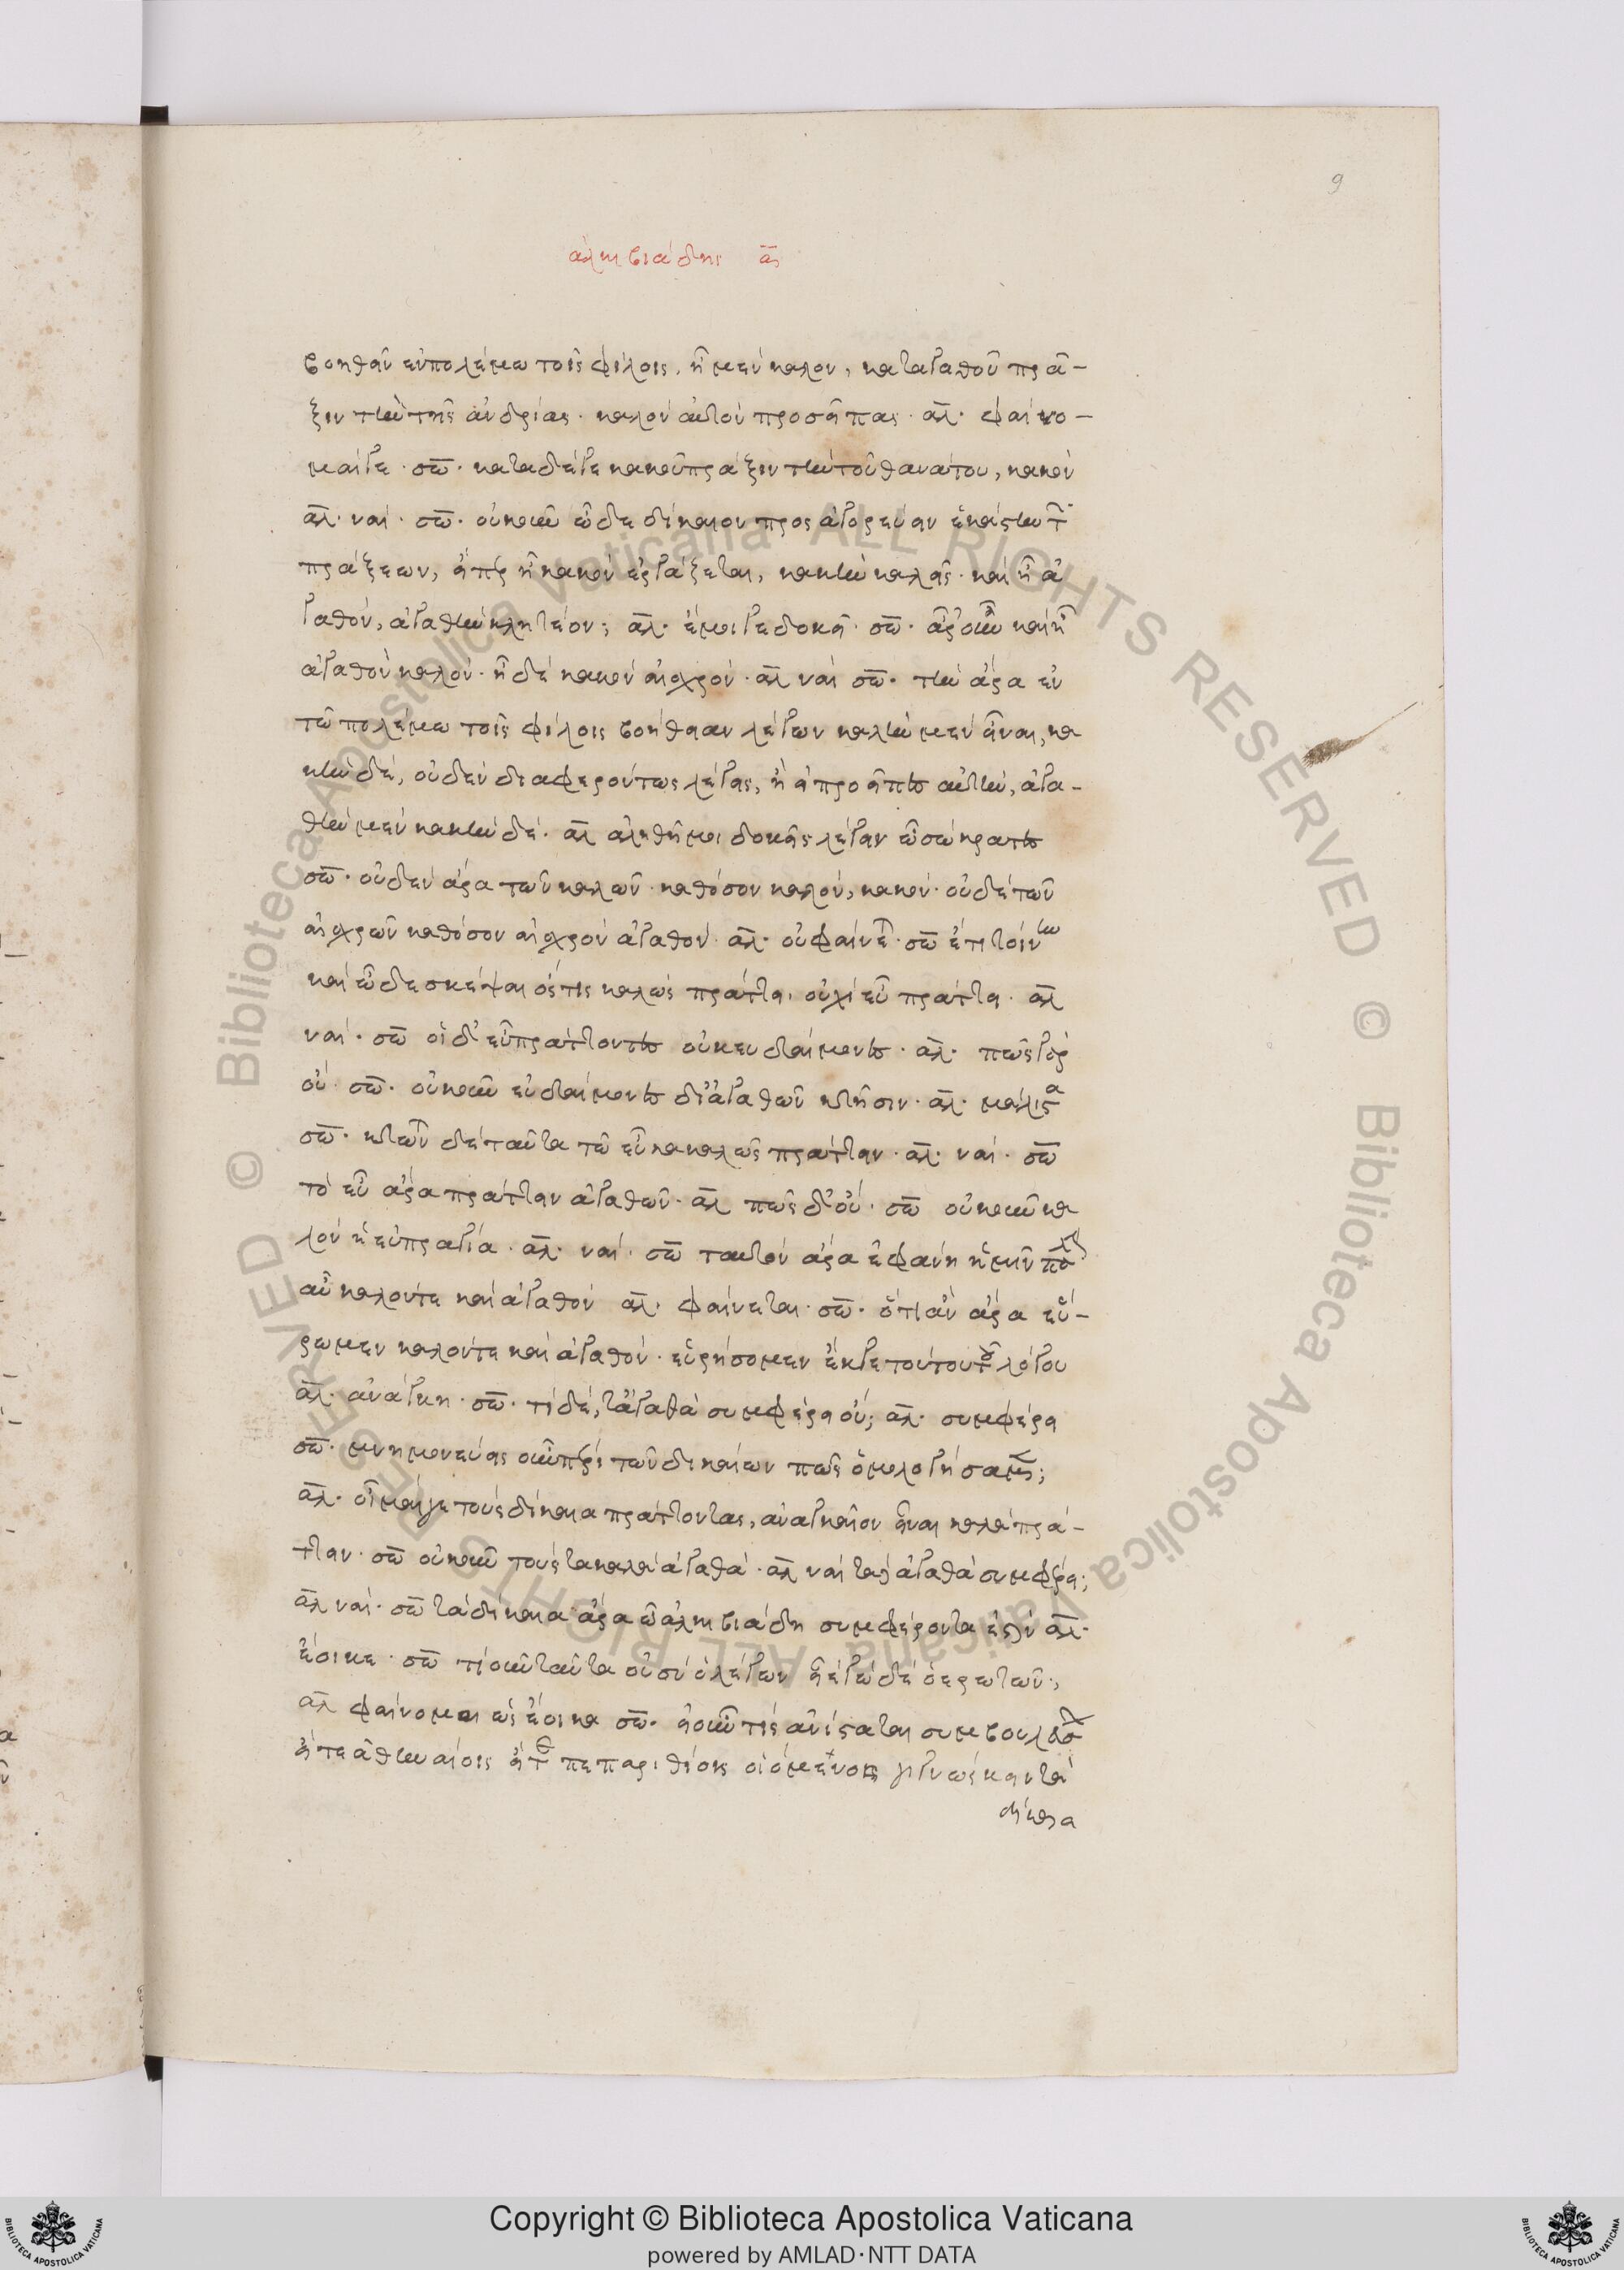 9
ἀλκιβιάδης ᾱ
βοηθεῖν ἐν πολέμω τοῖς φίλοις, ἧ μὲν καλὸν, κατ' ἀγαθοῦ πρᾶ-
ξιν τὴν τῆς ἀνδρίας· καλὸν αὐτὸν προσεῖπας· ἀλ· φαίνο-
μαί γε· σω· κατὰ δέ γε κακοῦ πρᾶξιν τὴν τοῦ θανάτου, κακόν
ἀλ· ναί· σω· οὐκοῦν ὧδε δίκαιον προσαγορεύειν ἑκάστην τ
πράξεων, εἴπερ ἧ κακὸν ἐργάζεται, κακὴν καλεῖς· καὶ ἧ ἀ
γαθόν, ἀγαθὴν κλητέον; ἀλ· ἔμοιγε δοκεῖ· σω· ἆρ' οὖν καὶ ἧ
ἀγαθὸν καλόν· ἧ δὲ κακὸν αἰσχρόν· ἀλ ναί σω· τὴν ἄρα ἐν
τῶ πολέμω τοῖς φίλοις βοήθειαν λέγων καλὴν μὲν εἶναι, κα
κὴν δὲ, οὐδὲν διαφερόντως λέγεις, ἢ εἰ προεῖπες αὐτὴν, ἀγα-
θὴν μὲν κακὴν δέ· ἀλ ἀληθῆ μοι δοκεῖς λέγειν ὦ σώκρατες
σω· οὐδὲν ἄρα τῶν καλῶν καθόσον καλόν, κακόν· οὐδὲ τῶν
αἰσχρῶν καθόσον αἰσχρὸν ἀγαθόν· ἀλ· οὐ φαίνετ· σω ἔτι τοίνυν
καὶ ὧδε σκέψαι ὅστις καλῶς πράττει, οὐχὶ εὖ πράττει· ἀλ
ναί· σω οἱ δ' εὖ πράττοντες οὐκ εὐδαίμονες· ἀλ· πῶς γὰρ
οὔ· σω· οὐκοῦν εὐδαίμονες δι' ἀγαθῶν κτῆσιν· ἀλ· μάλιστα
σω· κτῶν δὲ ταῦτα τῶ εὖ κα καλῶς πράττειν· ἀλ· ναί· σω
τὸ εὖ ἄρα πράττειν ἀγαθῶν· ἀλ πῶς δ' οὔ· σω οὐκοῦν κα
λὸν ἡ εὐπραγία· ἀλ· ναί· σω ταυτὸν ἄρα ἐφάνη ἡμῖν πάλιν
αὖ καλόν τε καὶ ἀγαθόν ἀλ· φαίνεται· σω· ὅτι ἂν ἄρα εὕ-
ρωμεν καλόν τε καὶ ἀγαθόν· εὑρήσομεν ἔκ γε τούτου τοῦ λόγου
ἀλ· ἀνάγκη· σω· τί δέ, τἀγαθὰ συμφέρει οὔ; ἀλ· συμφέρει
σω· μνημονεύεις οὖν περὶ τῶν δικαίων πῶς ὁμολογήσαμεν;
ἀλ· οἶμαί γε τοὺς δίκαια πράττοντας, ἀναγκαῖον εἶναι καλὰ πρά-
ττειν· σω οὐκοῦν τοὺς τὰ καλὰ ἀγαθά· ἀλ ναί τὰ δὲ ἀγαθὰ συμφέρει;
ἀλ ναί· σω τὰ δίκαια ἄρα ὦ ἀλκιβιάδη συμφέροντα ἐστὶν ἀλ·
ἔοικε· σω τί οὖν ταῦτα οὐ σὺ ὁ λέγων εἶ ἐγὼ δὲ ὁ ἐρωτῶν·,
ἀλ φαίνομαι ὡς ἔοικα σω· εἰ οὖν τὶς ἀνίσταται συμβουλεύσ
εἴτε ἀθηναίοις εἴτε πεπαριθίοις οἰόμενος γιγνώσκειν τὰ
δίκαια
Copyright © Biblioteca Apostolica Vaticana
powered by AMLAD·NTT DATA
© Biblioteca Apostolica Vaticana ALL RIGHTS RESERVED © Biblioteca Apostolica Vaticana ALL RIGHTS RESERVED
BIBLIOTECA APOSTOLICA VATICANA
BIBLIOTECA APOSTOLICA VATICANA